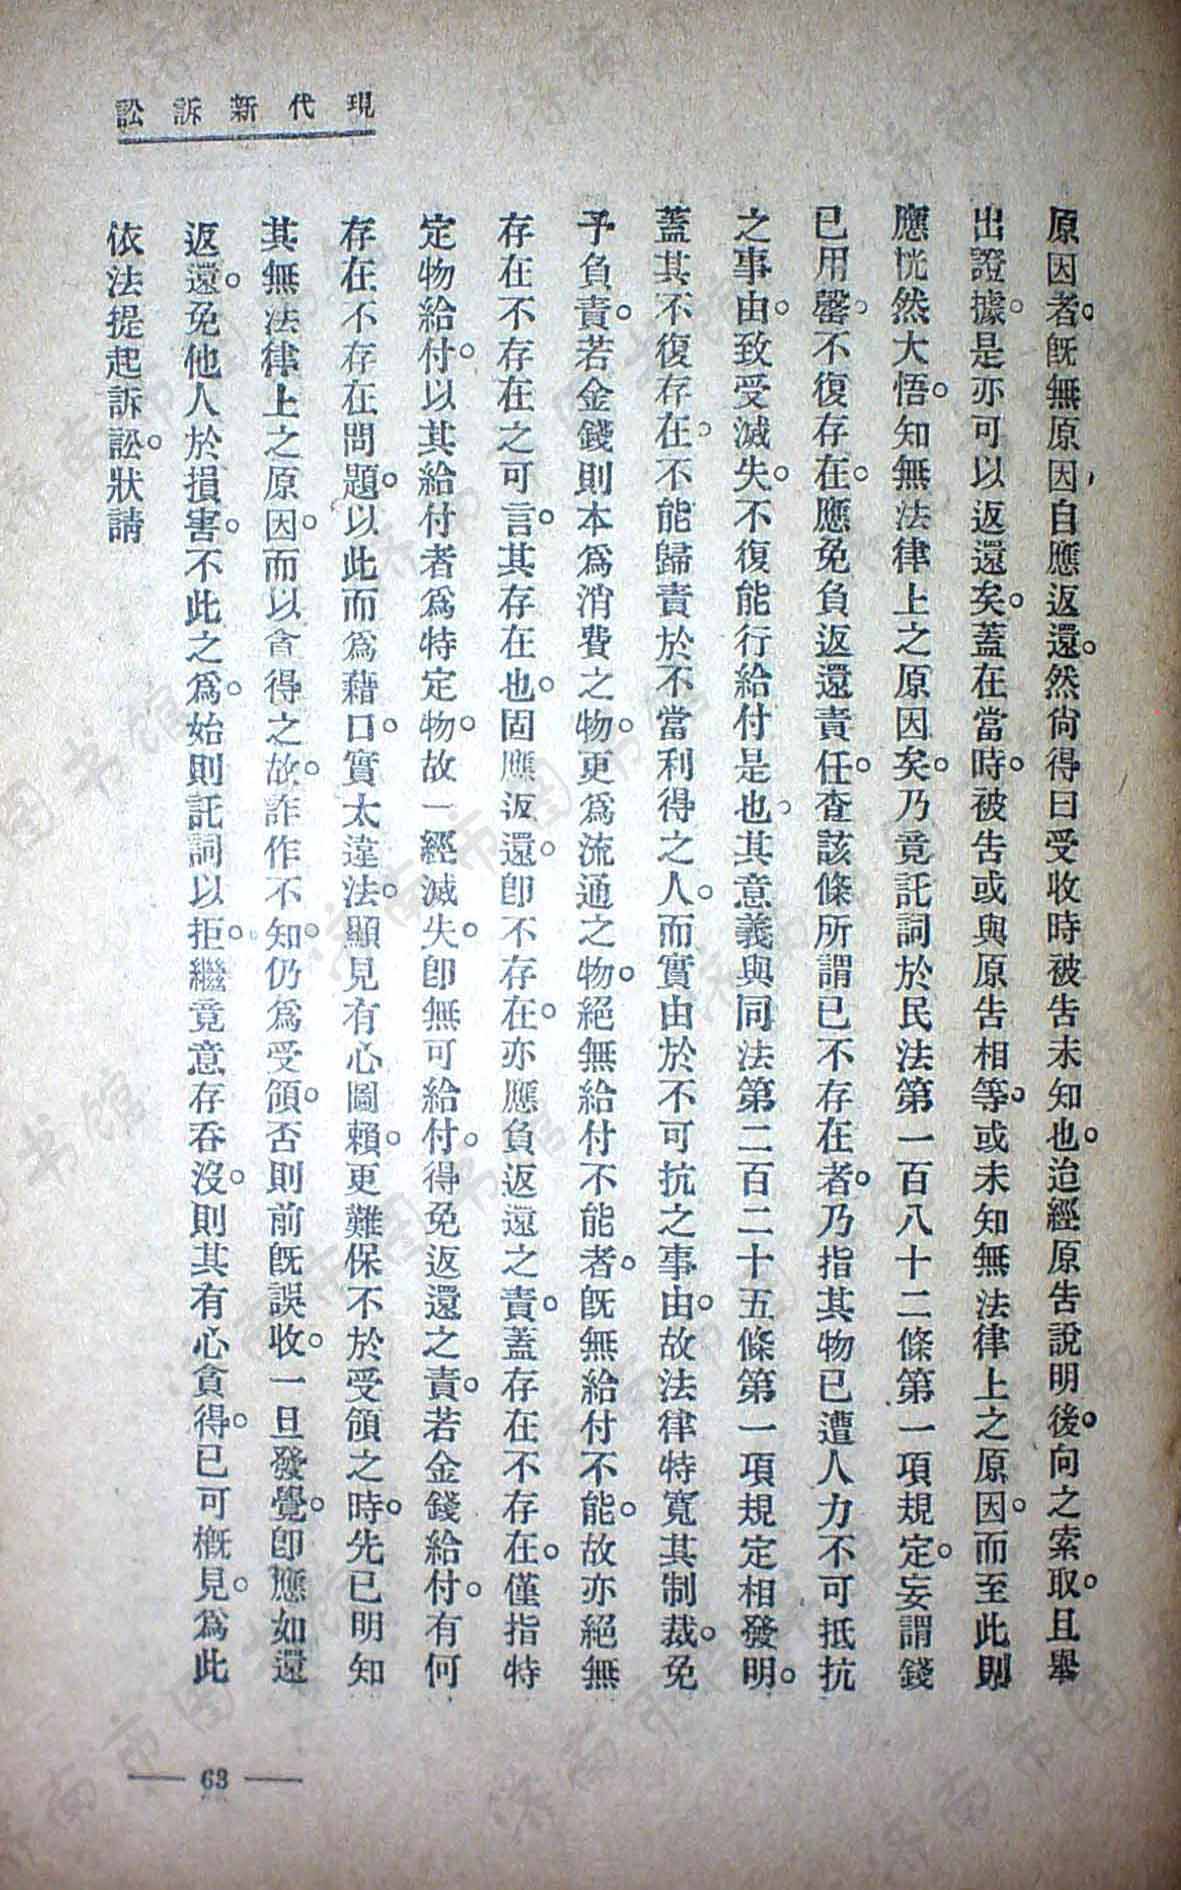 現代新訴訟
原因者。旣無原因自應返還。然尙得曰受收時被告未知也。迨經原告說明後。向之索取。且舉
出證據。是亦可以返還矣。蓋在當時。被告或與原告相等。或未知無法律上之原因。而至此則
應恍然大悟。知無法律上之原因矣。乃竟託詞於民法第一百八十二條第一項規定。妄謂錢
已用罄。不復存在。應免負返還責任。查該條所謂已不存在者。乃指其物已遭人力不可抵抗
之事由。致受滅失。不復能行給付是也。其意義與同法第二百二十五條第一項規定相發明。
蓋其不復存在。不能歸責於不當利得之人。而實由於不可抗之事由。故法律特寬其制裁。免
予負責。若金錢則本爲消費之物。更爲流通之物。絕無給付不能者。旣無給付不能。故亦絕無
存在不存在之可言。其存在也。固應返還。卽不存在。亦應負返還之責。蓋存在不存在。僅指特
定物給付。以其給付者爲特定物。故一經滅失。卽無可給付。得免返還之責。若金錢給付。有何
存在不存在問題。以此而爲藉口。實太違法。顯見有心圖賴。更難保不於受領之時。先已明知
其無法律上之原因。而以貪得之故。詐作不知。仍爲受領。否則前旣誤收。一旦發覺。卽應如還
返還。免他人於損害。不此之爲。始則託詞以拒。繼竟意存吞沒。則其有心貪得。已可槪見。爲此
依法提起訴訟。狀請
— 63 —
济南市图书馆